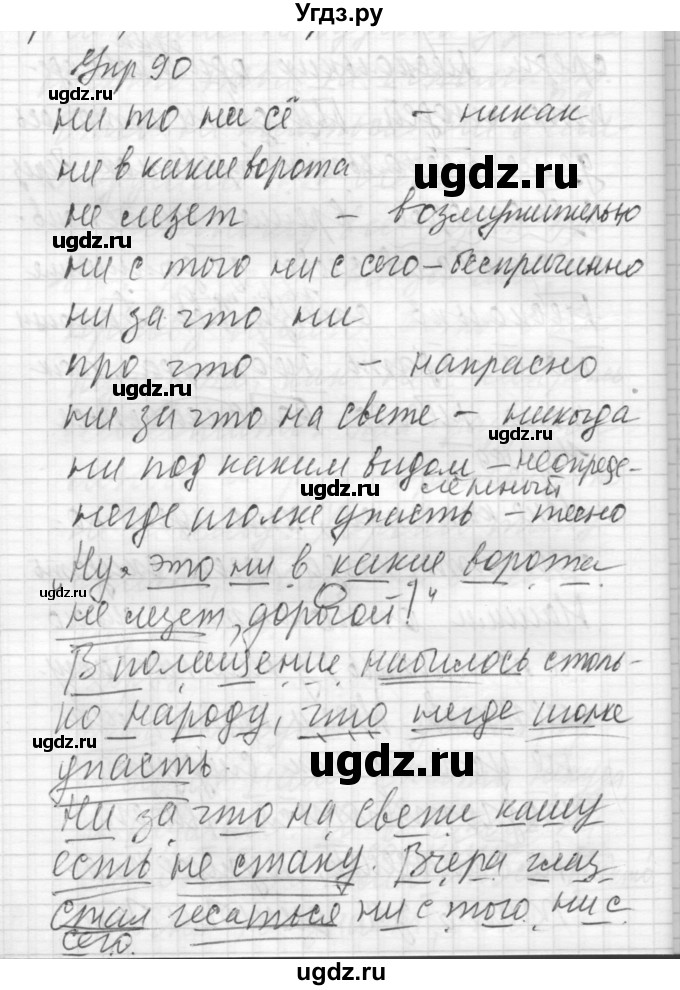 Угдз.ру
Упр 90
ugdz.ru
ни то ни сё - никак
ugdz.ru
ни в какие ворота
ugdz.ru
не лезет - возмутительно
ugdz.ru
ни с того ни с сего - беспричинно
ни за что ни
про что - напрасно
ugdz.ru
ни за что на свете - никогда
ugdz.ru
ни под каким видом - неопреде-
ugdz.ru
лённый
негде иголке упасть - тесно
„Ну, это ни в какие ворота
ugdz.ru
не лезет, дорогой!“
В помещение набилось столь-
ко народу, что негде иголке
ugdz.ru
упасть.
ugdz.ru
Ни за что на свете кашу
есть не стану. Вчера глаз
стал чесаться ни с того ни с
сего.
ugdz.ru
ugdz.ru